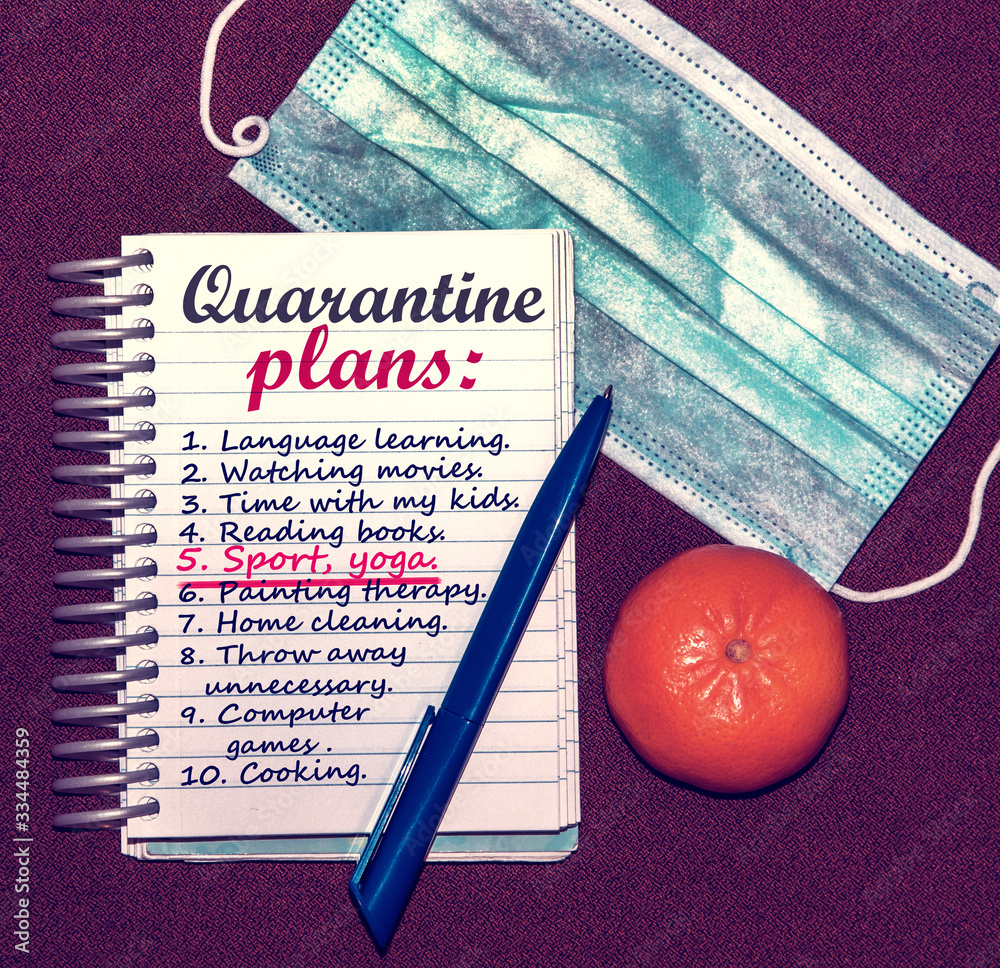 Quarantine
plans:
1. Language learning.
2. Watching movies.
3. Time with my kids.
4. Reading books.
5. Sport, yoga.
6. Painting therapy.
7. Home cleaning.
8. Throw away
unnecessary.
9. Computer
games .
10. Cooking.
Adobe Stock | #334484359